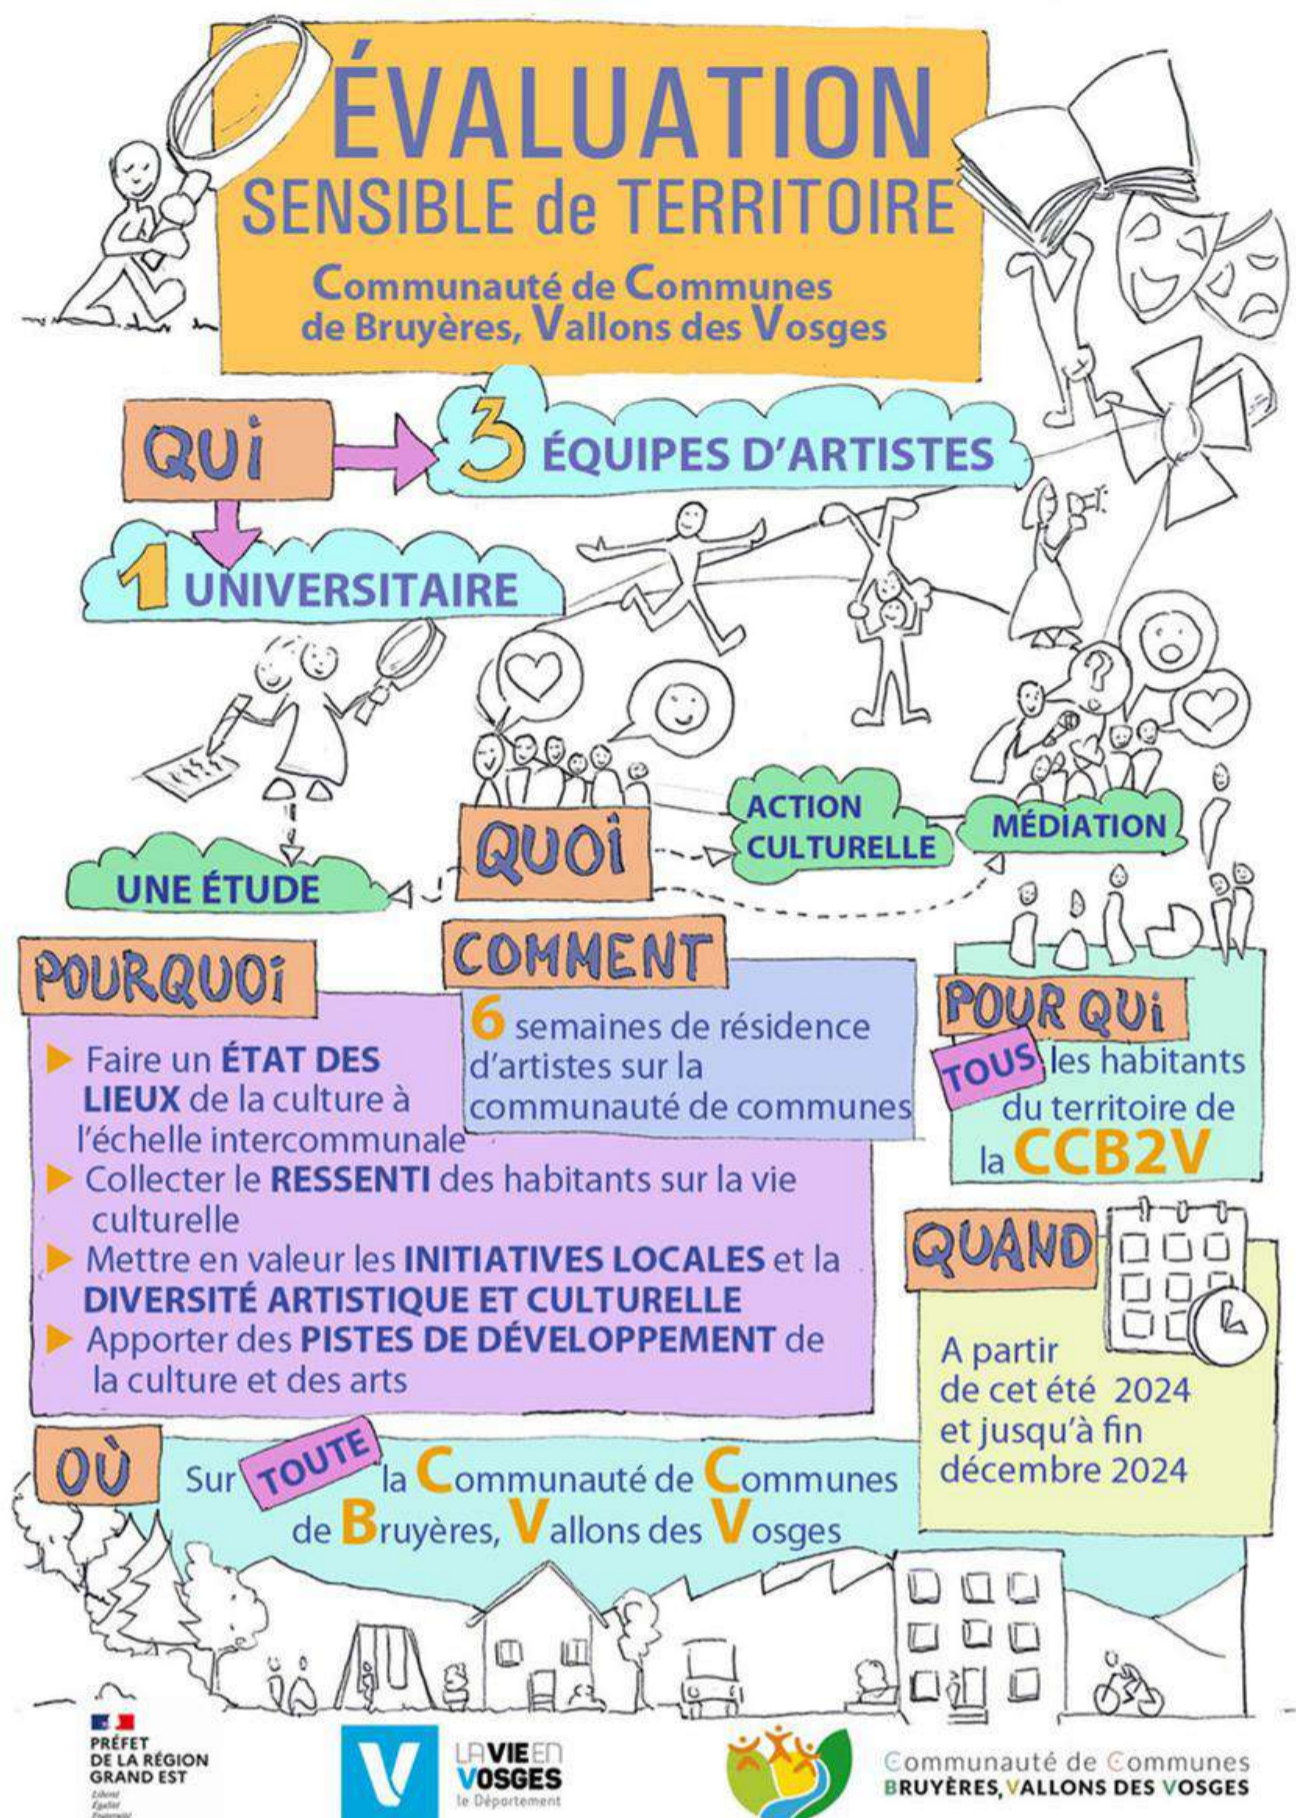 ÉVALUATION
SENSIBLE de TERRITOIRE
Communauté de Communes
de Bruyères, Vallons des Vosges
QUi
3 ÉQUIPES D'ARTISTES
1 UNIVERSITAIRE
?
QUOi
ACTION
CULTURELLE
MÉDIATION
UNE ÉTUDE
POURQUOi
Faire un ÉTAT DES
LIEUX de la culture à
l'échelle intercommunale
Collecter le RESSENTI des habitants sur la vie
culturelle
Mettre en valeur les INITIATIVES LOCALES et la
DIVERSITÉ ARTISTIQUE ET CULTURELLE
Apporter des PISTES DE DÉVELOPPEMENT de
la culture et des arts
COMMENT
6 semaines de résidence
d'artistes sur la
communauté de communes
POUR QUi
TOUS les habitants
du territoire de
la CCB2V
QUAND
A partir
de cet été 2024
et jusqu'à fin
décembre 2024
OÙ
Sur TOUTE la Communauté de Communes
de Bruyères, Vallons des Vosges
PRÉFET
DE LA RÉGION
GRAND EST
Liberté
Égalité
Fraternité
V
LA VIE EN
VOSGES
le Département
Communauté de Communes
BRUYÈRES, VALLONS DES VOSGES